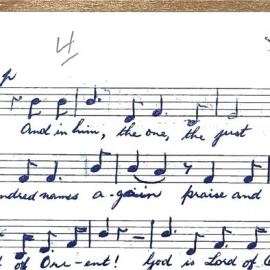 4
p
And in him, the one, the just
ndred names a-gain praise and
d of Ori-ent! God is Lord of O